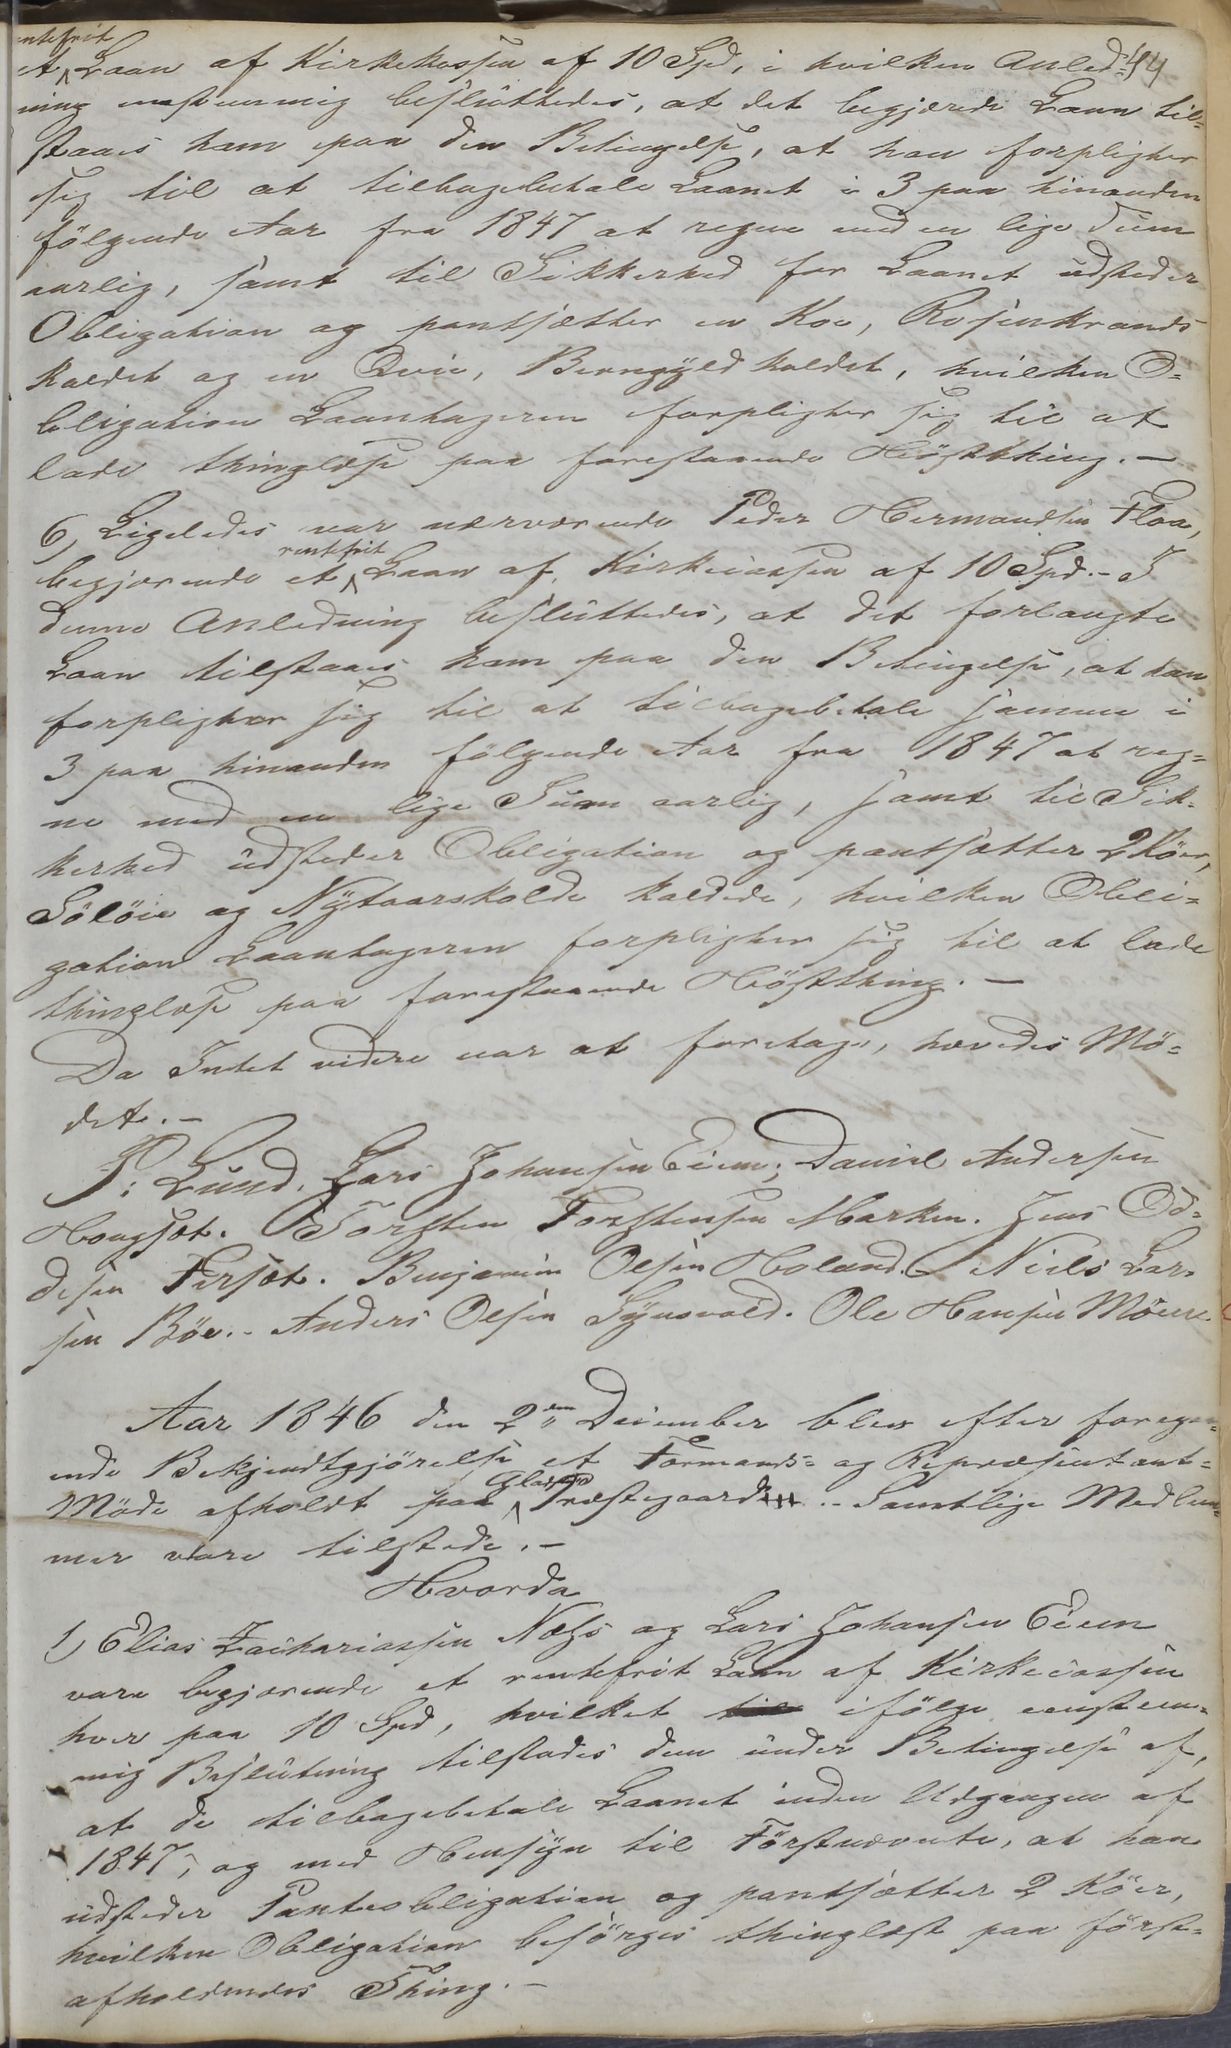 rentefrit
et Laan af Kirkekassen af 10 Spd, i hvilken Anled= 44
ning eenstemmig besluttedes, at det begjærede Laan til=
staaes ham paa den Betingelse, at han forpligter
sig til at tilbagebetale Laanet i 3 paa hinanden
følgende Aar fra 1847 at regne med en lige Sum
aarlig, samt til Sikkerhed for Laanet udsteder
Obligation og pantsætter en Koe, Rosenkrands
kaldet og en Qvie, Berngyld kaldet, hvilken O=
bligation Laantageren forpligter sig til at
lade thinglæse paa forestaaende Høstthing. -
6, Ligeledes var nærværende Peder Hermandsen Floa,
rentefrit
begjærende et Laan af Kirkecassen af 10 Spd. - I
denne Anledning besluttedes, at det forlangte
Laan tilstaaes ham paa den Betingelse, at han
forpligter sig til at tilbagebetale samme i
3 paa hinanden følgende Aar fra 1847 at reg=
ne med en lige Sum aarlig, samt til Sik=
kerhed udsteder Obligation og pantsætter 2 Køer,
Søløie og Nytaarskolde kaldede, hvilken Obli=
gation Laantageren forpligter sig til at lade
thinglæse paa forestaaende Høstthing. -
Da Intet videre var at foretage, hævedes Mø=
det. -
P: Lund. Lars Johansen Eiem; Daniel Andersen
Hongset. Torsten Torstensen Marken. Jens Od=
desen Fersæt. Benjamin Olsen Holand. Niels Lar=
sen Böe. - Anders Olsen Synsvold. Ole Hansen Möen.
Aar 1846 den 2den December blev efter foregaa=
ende Bekjendtgjørelse et Formands= og Repræsentant=
Møde afholdt paa Præstegaard. - Samtlige Medlem=
mer vare tilstede. -
Hvorda
1, Elias Zachariassen Næss og Lars Johansen Eiem
vare begjærende et rentefrit Laan af Kirkecassen
hver paa 10 Spd, hvilket til ifølge eenstem=
mig Beslutning tilstodes dem under Betingelse af,
at de tilbagebetale Laanet inden Udgangen af
1847, og med Hensyn til Førstnævnte, at han
udsteder Panteobligation og pantsætter 2 Køer,
hvilken Obligation besørges thinglæst paa først=
afholdendes Thing. -